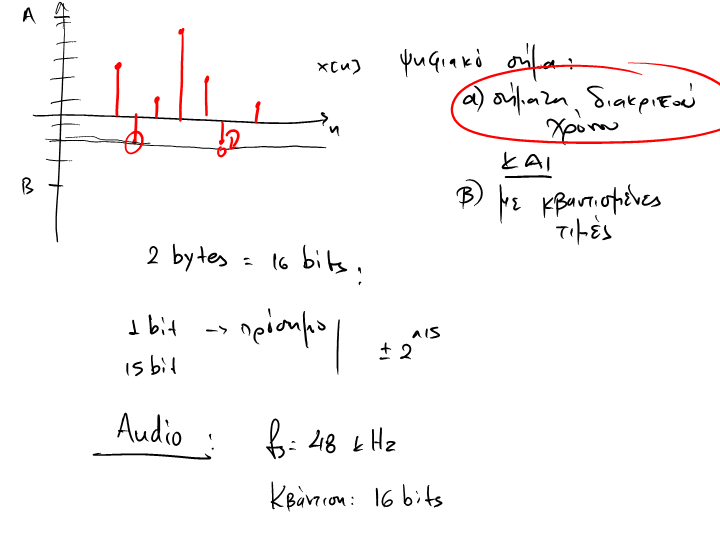 A
x[n]
n
B
ψηφιακό σήμα:
α) σήματα διακριτού
χρόνου
ΚΑΙ
β) με κβαντισμένες
τιμές
2 bytes = 16 bits:
1 bit → πρόσημο
15 bit
± 2^15
Audio:
fs = 48 kHz
Κβάντιση: 16 bits